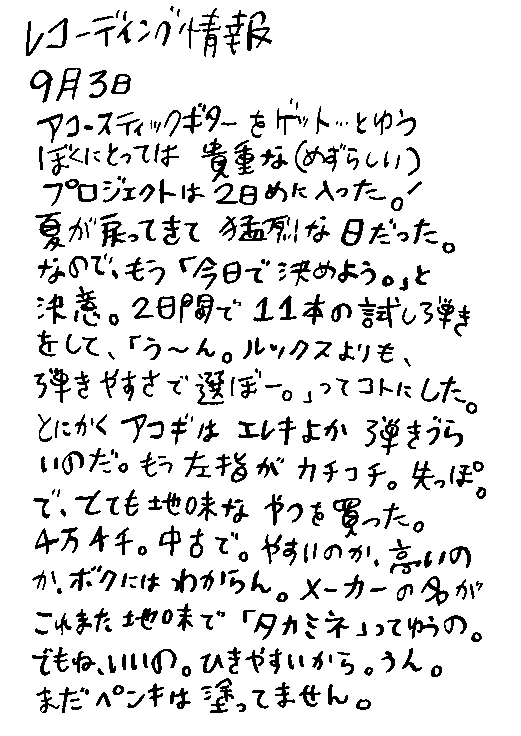 レコーディング情報
9月3日
アコースティックギターをゲット…とゆう
ぼくにとっては 貴重な(めずらしい)
プロジェクトは2日めに入った。!
夏が戻ってきて 猛烈な日だった。
なので、もう「今日で決めよう。」と
決意。2日間で11本の試し弾き
をして、「う〜ん。ルックスよりも、
弾きやすさで選ぼー。」ってコトにした。
とにかく アコギは エレキよか 弾きづら
いのだ。もう左指が カチコチ。先っぽ。
で、とても地味な やつを買った。
4万4千。中古で。やすいのか、高いの
か、ボクには わからん。メーカーの名が
これまた地味で「タカミネ」ってゆうの。
でもね、いいの。ひきやすいから。うん。
まだペンキは塗ってません。